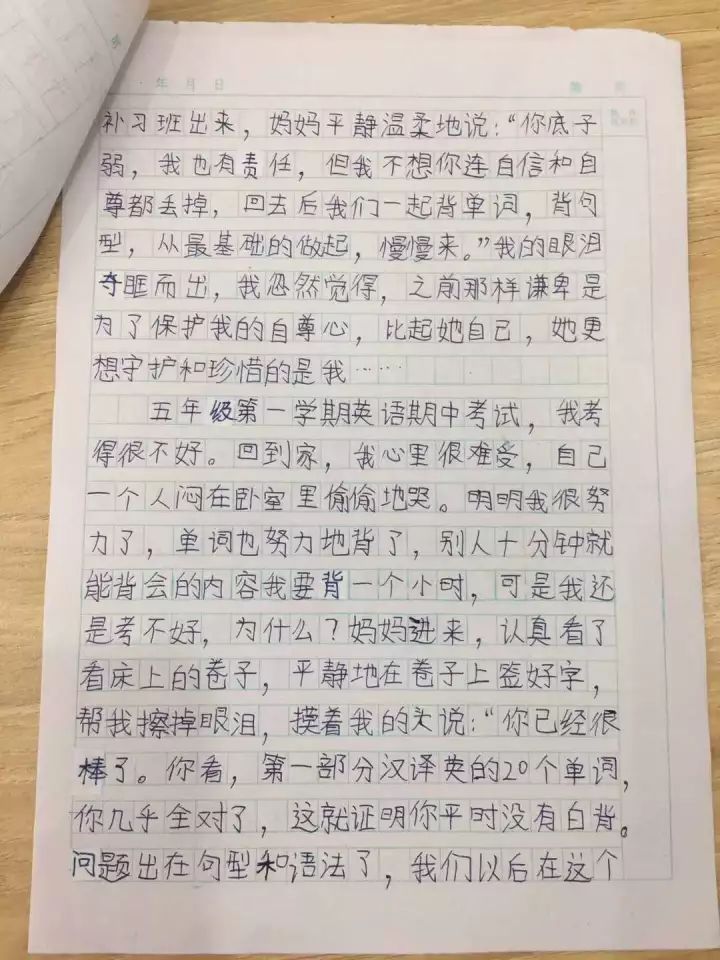 年 月 日
补习班出来，妈妈平静温柔地说：“你底子
弱，我也有责任，但我不想你连自信和自
尊都丢掉，回去后我们一起背单词，背句
型，从最基础的做起，慢慢来。”我的眼泪
夺眶而出，我忽然觉得，之前那样谦卑是
为了保护我的自尊心，比起她自己，她更
想守护和珍惜的是我……
五年级第一学期英语期中考试，我考
得很不好。回到家，我心里很难受，自己
一个人闷在卧室里偷偷地哭。明明我很努
力了，单词也努力地背了，别人十分钟就
能背会的内容我要背一个小时，可是我还
是考不好，为什么？妈妈进来，认真看了
看床上的卷子，平静地在卷子上签好字，
帮我擦掉眼泪，摸着我的头说：“你已经很
棒了。你看，第一部分汉译英的20个单词，
你几乎全对了，这就证明你平时没有白背。
问题出在句型和语法了，我们以后在这个